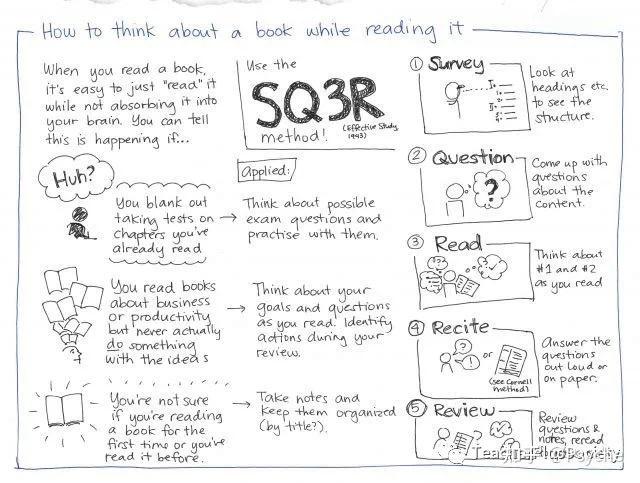 How to think about a book while reading it
When you read a book,
it's easy to just "read" it
while not absorbing it into
your brain. You can tell
this is happening if...
Use the
SQ3R
method!
(Effective Study,
Huh?
You blank out
taking tests on
chapters you've
already read
You read books
about business
or productivity
but never actually
do something
with the ideas
You're not sure
if you're reading
a book for the
first time or you've
read it before.
Applied:
Think about possible
exam questions and
practise with them.
Think about your
goals and questions
as you read. Identify
actions during your
review.
Take notes and
keep them organized
(by title?).
① Survey
Look at
headings etc.
to see the
structure.
② Question
?
Come up with
questions
about the
content.
③ Read
Think about
#1 and #2
as you read
④ Recite
? !
or
(see Cornell
method)
Answer the
questions
out loud or
on paper.
⑤ Review
Review
questions &
notes, reread